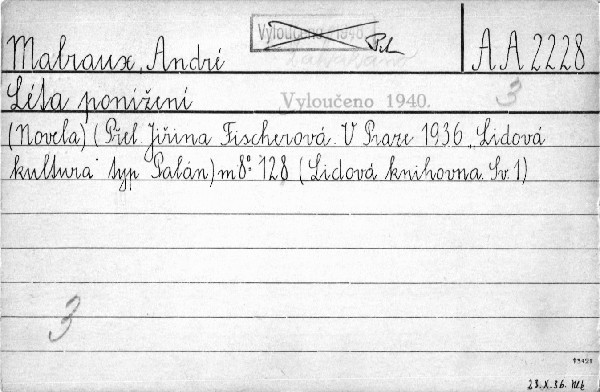 Vyloučeno 1940.
Malraux, André
AA2228
Léta ponížení
Vyloučeno 1940.
3
(Novela) (Přel. Jiřina Fischerová. V Praze 1936. „Lidová
kultura" typ Palán) m 8° 128 (Lidová knihovna. Sv. 1)
3
28.X.36.